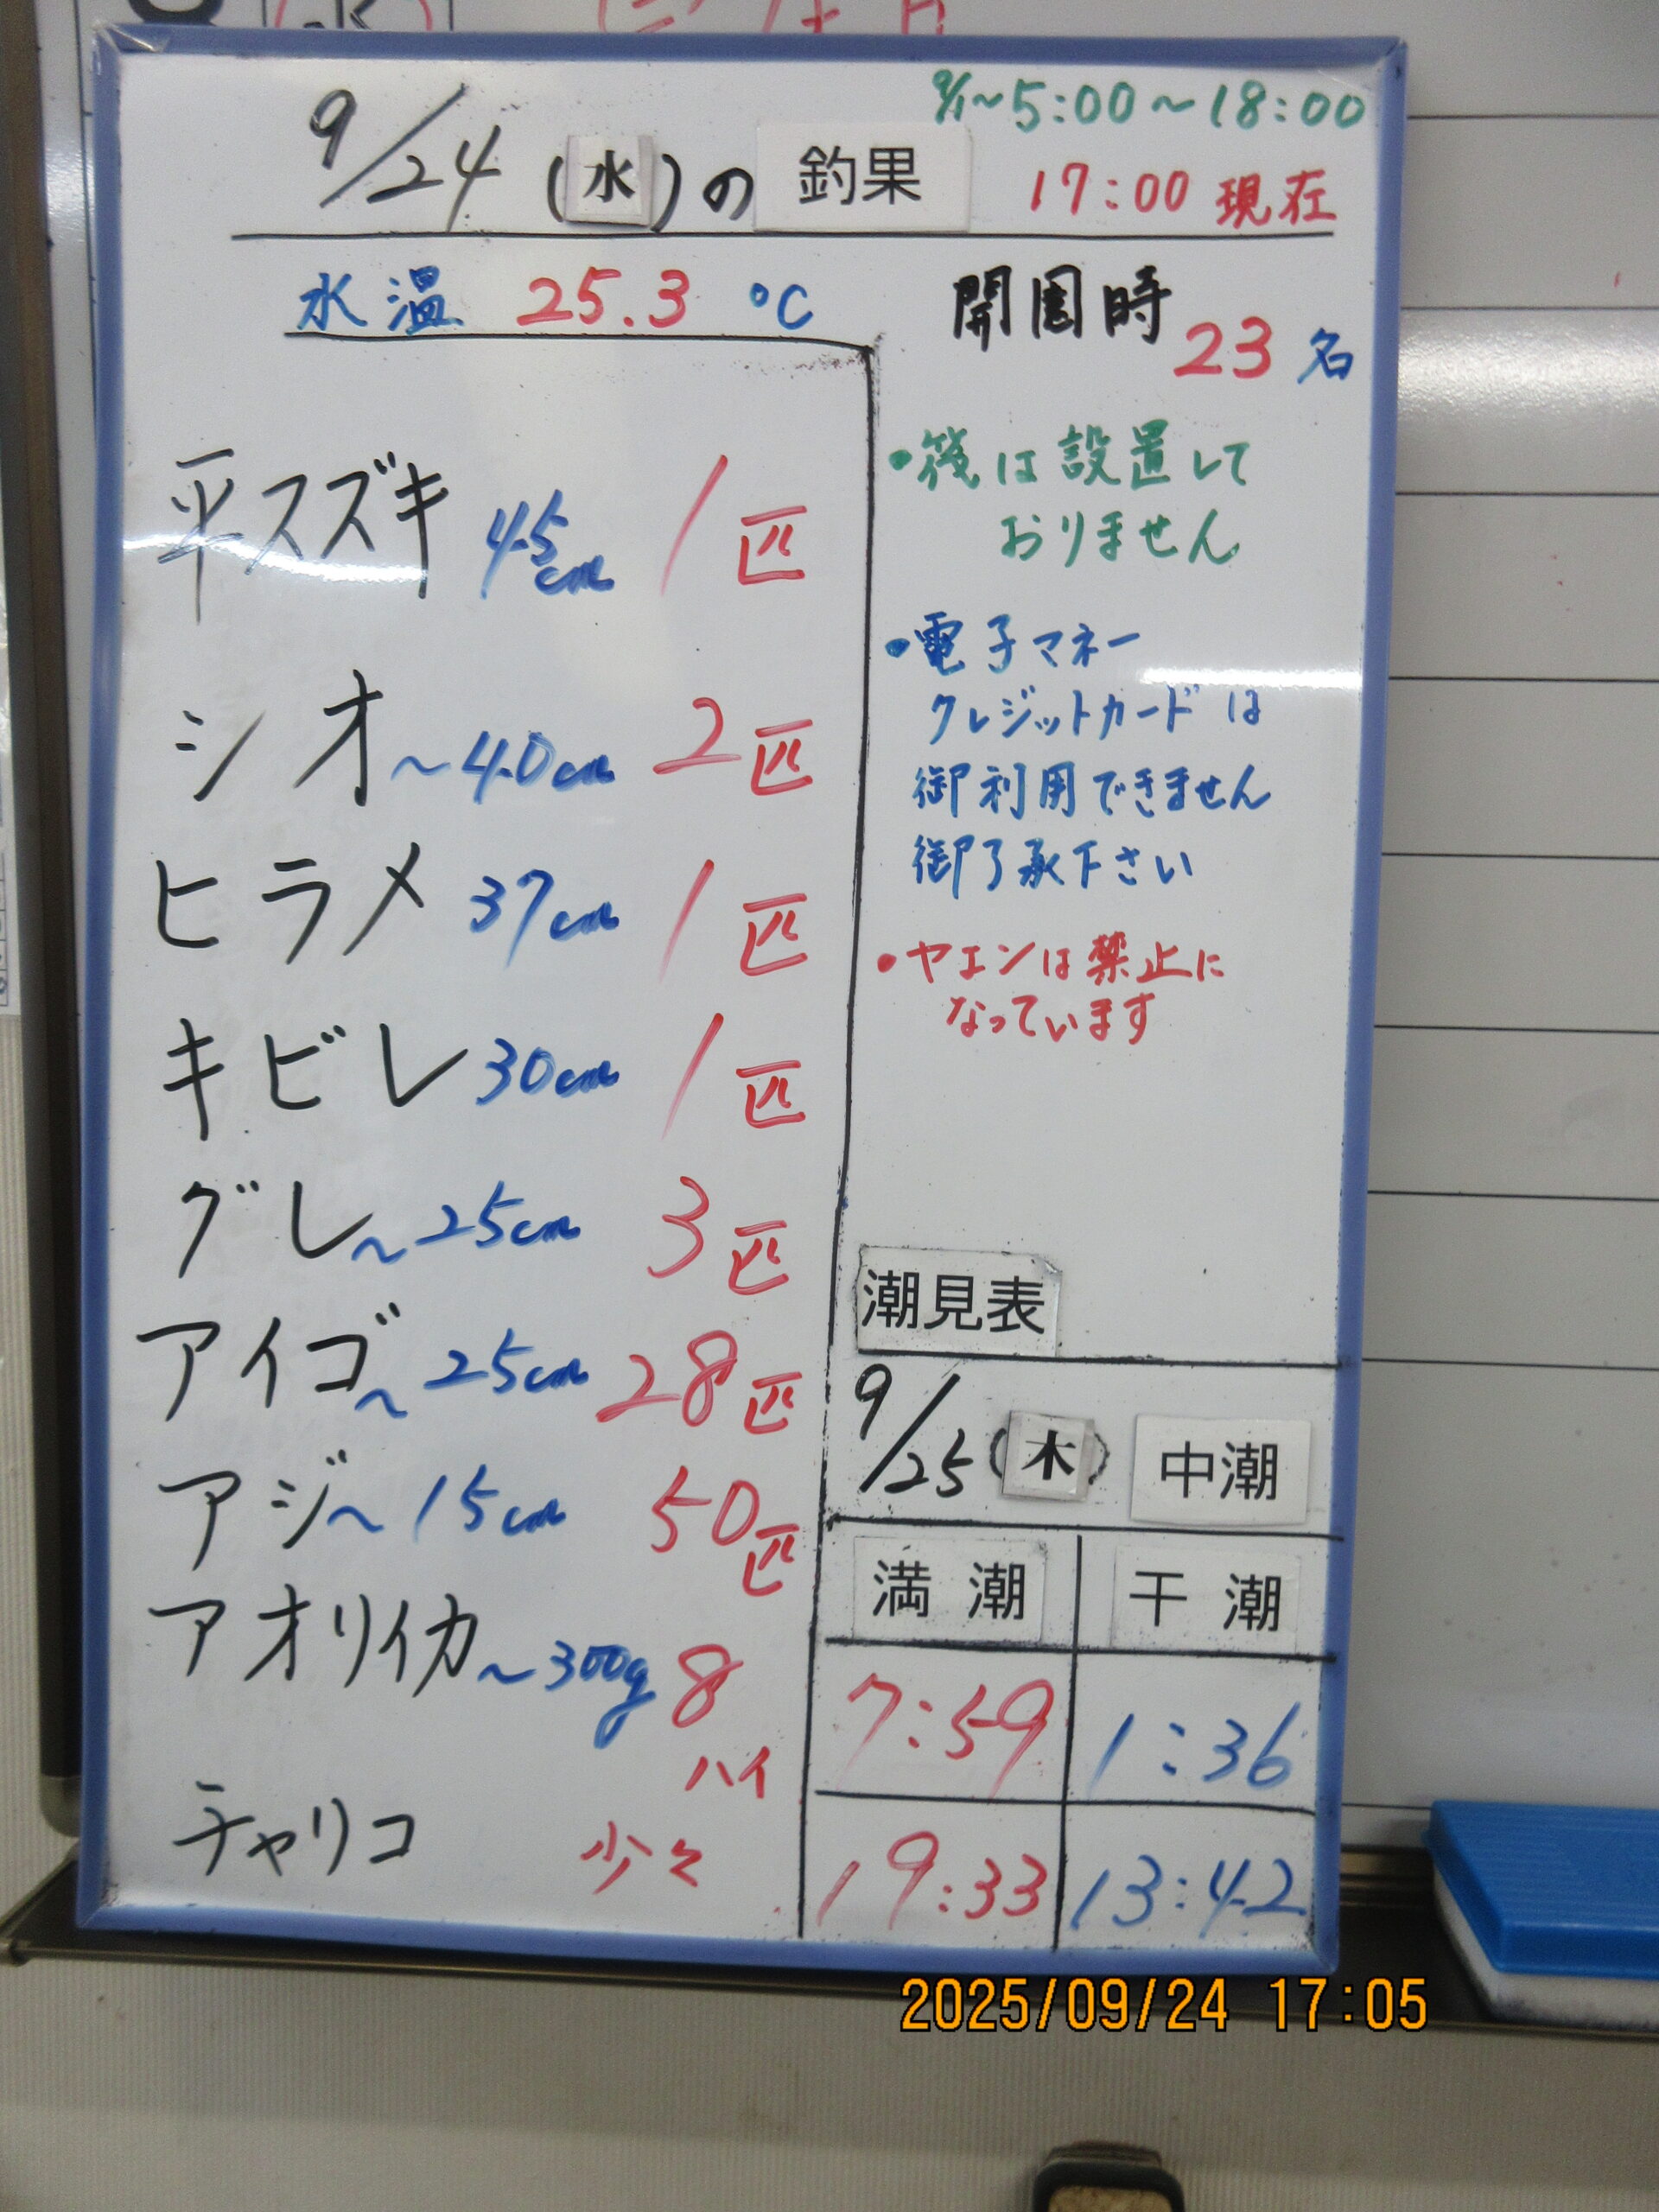 9/1~5:00~18:00
9/24(水)の釣果
17:00現在
水温 25.3 ℃
開園時 23名
平スズキ 45cm 1匹
シオ ~40cm 2匹
ヒラメ 37cm 1匹
キビレ 30cm 1匹
グレ ~25cm 3匹
アイゴ ~25cm 28匹
アジ ~15cm 50匹
アオリイカ ~300g 8ハイ
チャリコ 少々
•筏は設置して
おりません
•電子マネー
クレジットカードは
御利用できません
御了承下さい
•ヤエンは禁止に
なっています
潮見表
9/25(木) 中潮
満潮 干潮
7:59 1:36
19:33 13:42
2025/09/24 17:05